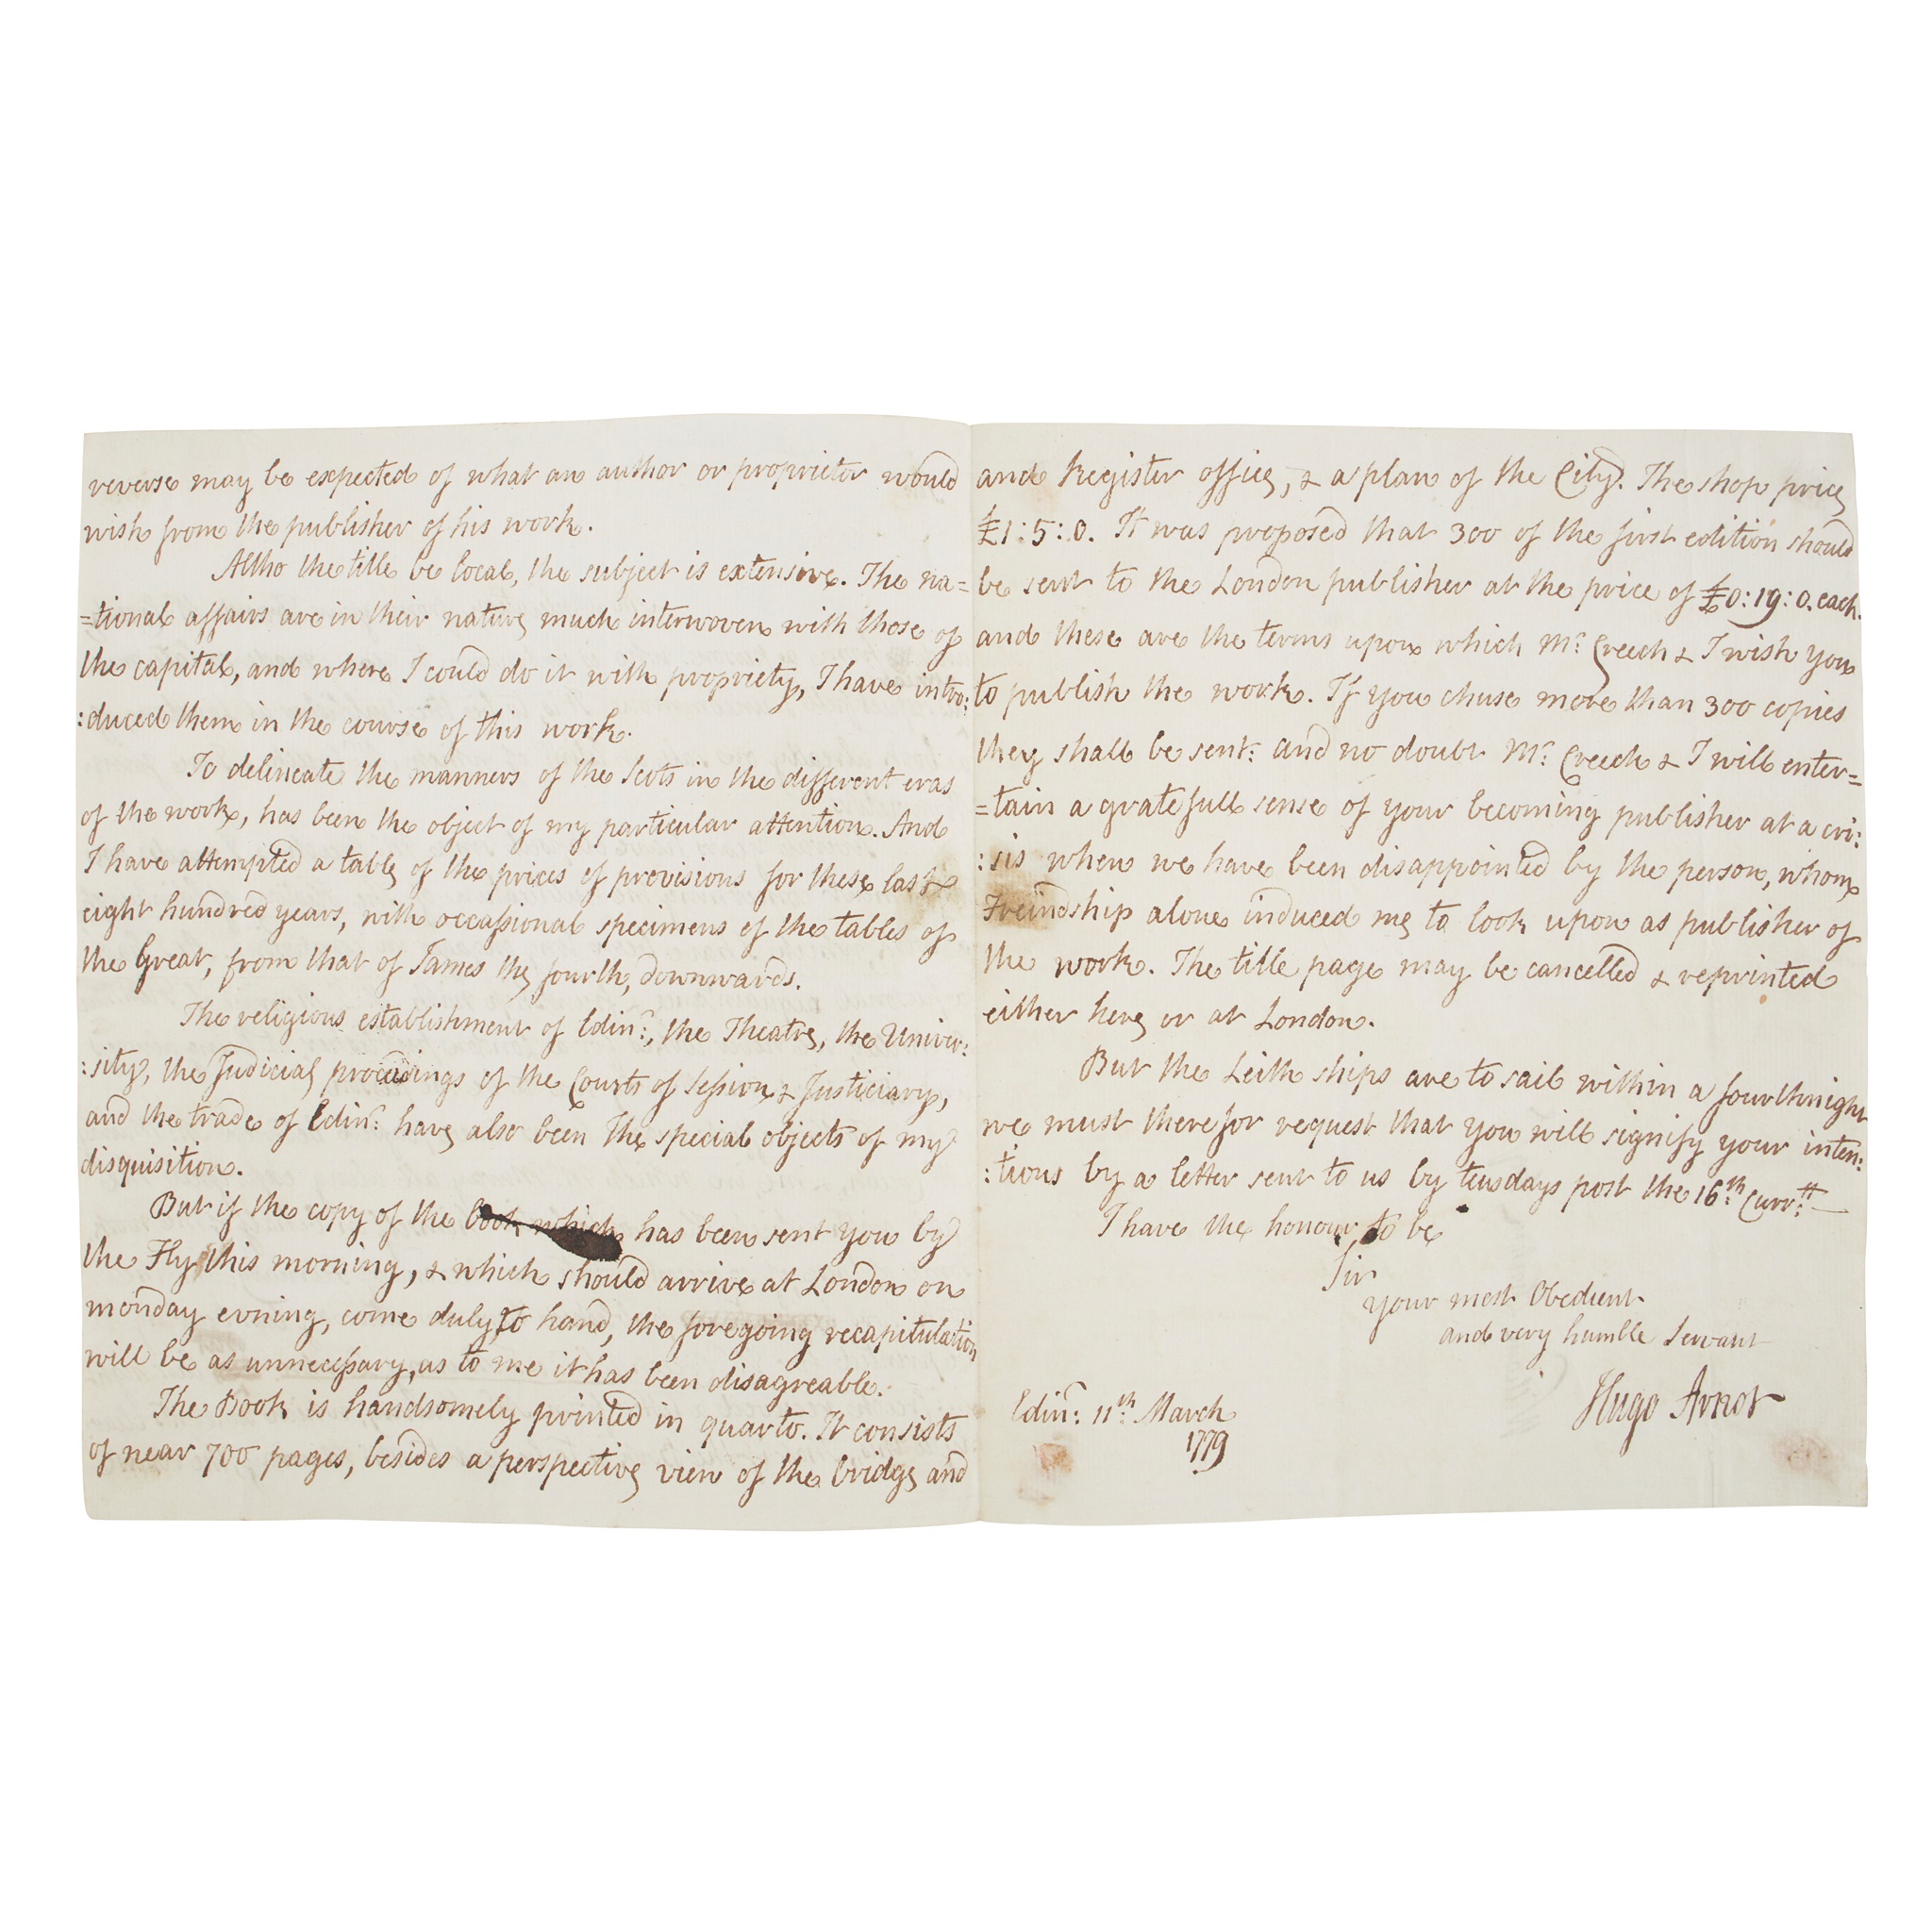 reverse may be expected of what an author or proprietor would
wish from the publisher of his work.
Altho the title be local, the subject is extensive. The na=
=tional affairs are in their nature much interwoven with those of
the capital, and where I could do it with propriety, I have intro:
:duced them in the course of this work.
To delineate the manners of the Scots in the different eras
of the work, has been the object of my particular attention. And
I have attempted a table of the prices of provisions for these last
eight hundred years, with occassional specimens of the tables of
the Great, from that of James the fourth, downwards.
The religious establishment of Edinr:, the Theatre, the Univer:
:sity, the Judicial proceedings of the Courts of Session & Justiciary,
and the trade of Edinr: have also been the special objects of my
disquisition.
But if the copy of the book which has been sent you by
the Fly this morning, & which should arrive at London on
monday evning, come duly to hand, the foregoing recapitulation
will be as unnecessary, as to me it has been disagreable.
The Book is handsomely printed in quarto. It consists
of near 700 pages, besides a perspective view of the bridge and
and Register office, & a plan of the City. The shop price
£1:5:0. It was proposed that 300 of the first edition should
be sent to the London publisher at the price of £0:19:0. each.
and these are the terms upon which Mr: Creech & I wish you
to publish the work. If you chuse more than 300 copies
they shall be sent: and no doubt Mr: Creech & I will enter=
=tain a gratefull sense of your becoming publisher at a cri:
:sis when we have been disappointed by the person, whom
Freindship alone induced me to look upon as publisher of
the work. The title page may be cancelled & reprinted
either here or at London.
But the Leith ships are to sail within a fourthnight
we must therefor request that you will signify your inten:
:tions by a letter sent to us by teusdays post the 16th: Currtt:
I have the honour, to be
Sir
your most Obedient
and very humble Servant
Hugo Arnot
Edinr: 11th: March
1779